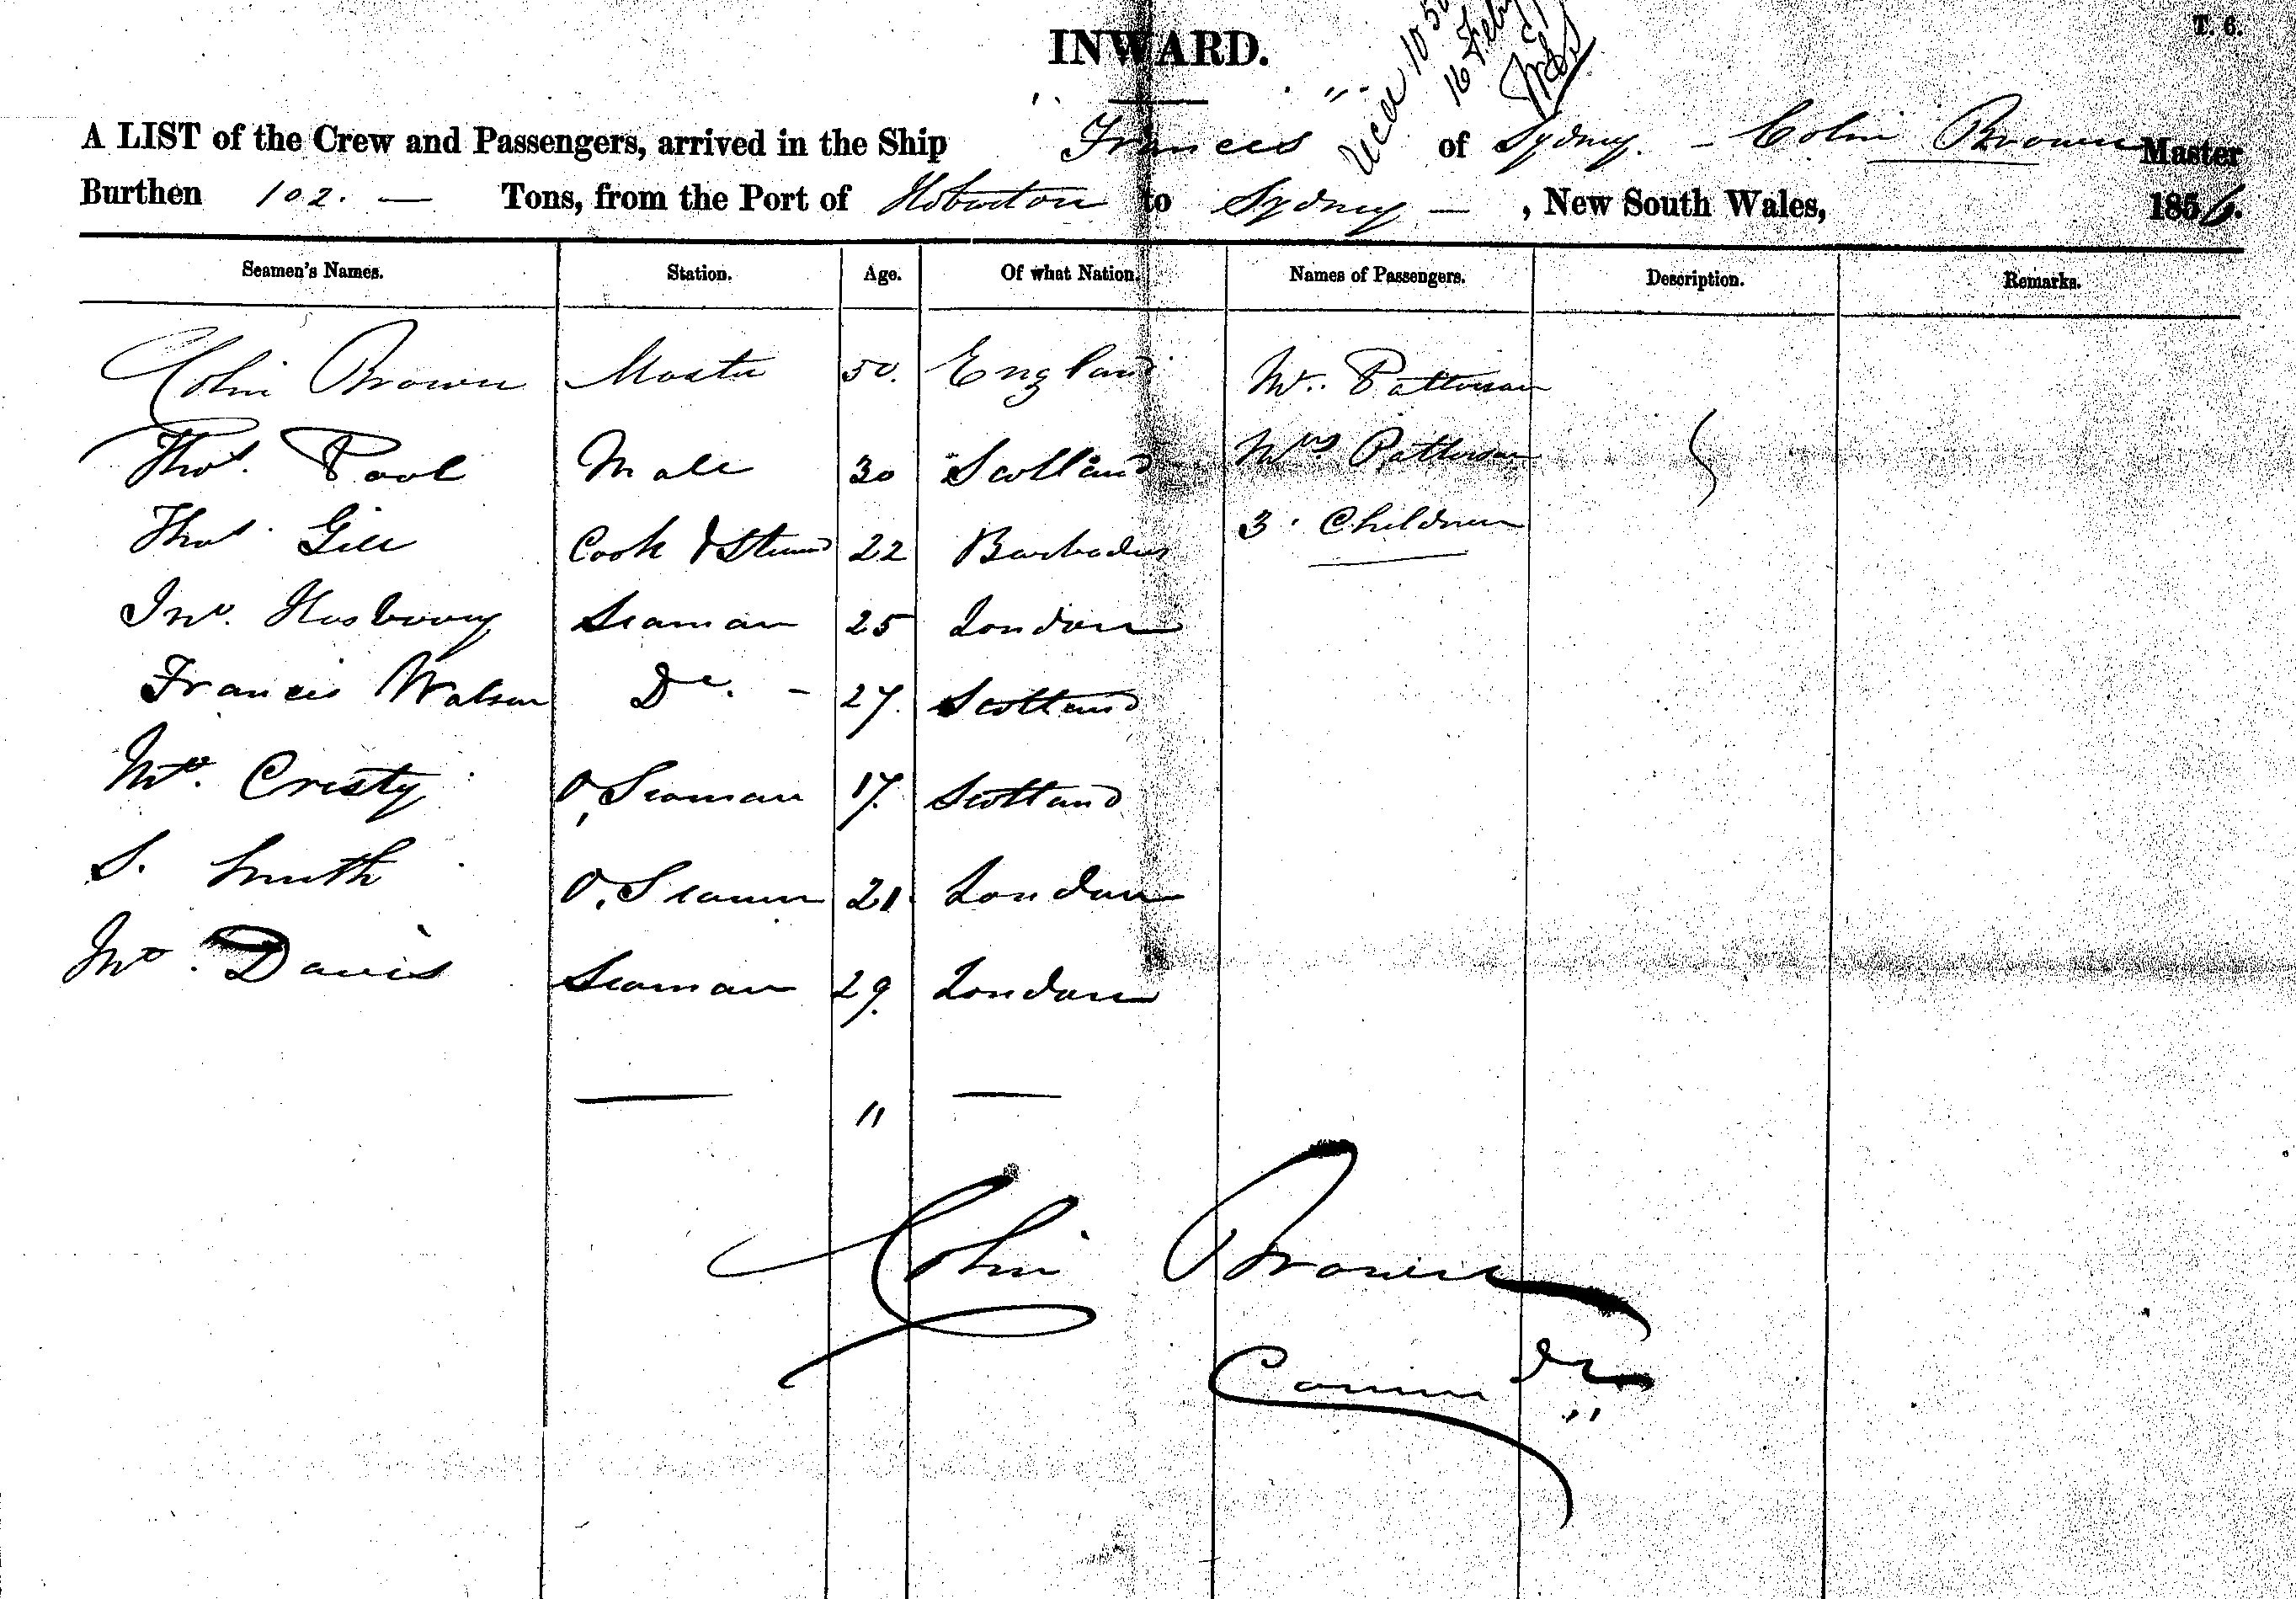 T. 6.
INWARD.
16 Feby
A LIST of the Crew and Passengers, arrived in the Ship Frances of Sydney. - Colin Brown Master
Burthen 102. — Tons, from the Port of Hobarton to Sydney — , New South Wales, 1856.
Seamen's Names. Station. Age. Of what Nation. Names of Passengers. Description. Remarks.
Colin Brown Master 50. England Mr. Patterson
Thos. Pool Mate 30 Scotland Mrs Patterson
Thos. Gill Cook & Steward 22 Barbados 3. Children
Jno. Seaman 25 London
Francis Watson Do. - 27. Scotland
Cristy O, Seaman 17. Scotland
S. Smith O. Seaman 21 London
Davis Seaman 29. London
— " —
Colin Brown
Commdr